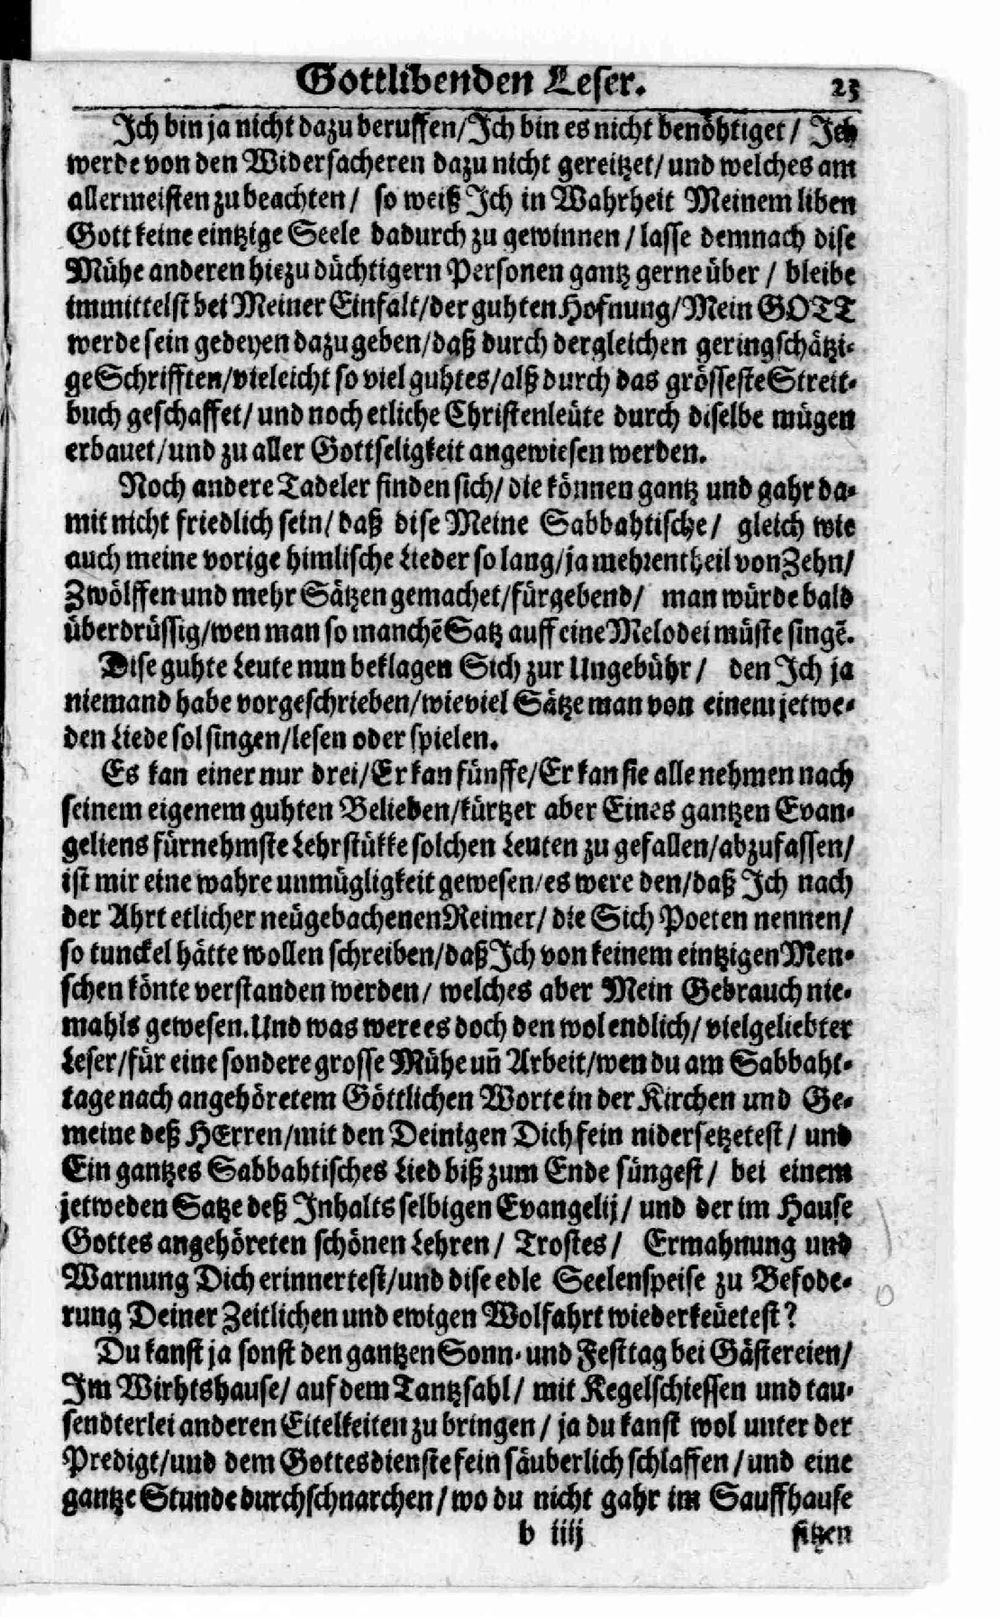 Gottlibenden Leser. 23
Ich bin ja nicht dazu beruffen/Ich bin es nicht benöhtiget/ Ich
werde von den Widersacheren dazu nicht gereitzet/und welches am
allermeisten zu beachten/ so weiß Ich in Wahrheit Meinem liben
Gott keine eintzige Seele dadurch zu gewinnen/lasse demnach dise
Mühe anderen hiezu düchtigern Personen gantz gerne über/ bleibe
immittelst bei Meiner Einfalt/der guhten Hofnung/Mein GOTT
werde sein gedeyen dazu geben/daß durch dergleichen geringschätzi-
ge Schrifften/vieleicht so viel guhtes/alß durch das grösseste Streit-
buch geschaffet/und noch etliche Christenleüte durch diselbe mügen
erbauet/und zu aller Gottseligkeit angewiesen werden.
Noch andere Tadeler finden sich/die können gantz und gahr da-
mit nicht friedlich sein/daß dise Meine Sabbahtische/ gleich wie
auch meine vorige himlische Lieder so lang/ja mehrentheil von Zehn/
Zwölffen und mehr Sätzen gemachet/fürgebend/ man würde bald
überdrüssig/wen man so manchē Satz auff eine Melodei müste singē.
Dise guhte Leute nun beklagen Sich zur Ungebühr/ den Ich ja
niemand habe vorgeschrieben/wieviel Sätze man von einem jetwe-
den Liede sol singen/lesen oder spielen.
Es kan einer nur drei/Er kan fünffe/Er kan sie alle nehmen nach
seinem eigenem guhten Belieben/kürtzer aber Eines gantzen Evan-
geliens fürnehmste Lehrstükke solchen Leuten zu gefallen/abzufassen/
ist mir eine wahre unmügligkeit gewesen/es were den/daß Ich nach
der Ahrt etlicher neügebachenen Reimer/die Sich Poeten nennen/
so tunckel hätte wollen schreiben/daß Ich von keinem eintzigen Men-
schen könte verstanden werden/ welches aber Mein Gebrauch nie-
mahls gewesen. Und was were es doch den wol endlich/ vielgeliebter
Leser/für eine sondere grosse Mühe uñ Arbeit/wen du am Sabbaht-
tage nach angehöretem Göttlichen Worte in der Kirchen und Ge-
meine deß HErren/mit den Deinigen Dich fein nidersetzetest/ und
Ein gantzes Sabbahtisches Lied biß zum Ende süngest/ bei einem
jetweden Satze deß Inhalts selbigen Evangelij/ und der im Hause
Gottes angehöreten schönen Lehren/ Trostes/ Ermahnung und
Warnung Dich erinnertest/und dise edle Seelenspeise zu Befode-
rung Deiner Zeitlichen und ewigen Wolfahrt wiederkeüetest?
Du kanst ja sonst den gantzen Sonn- und Festtag bei Gästereien/
Im Wirhtshause/ auf dem Tantzsahl/ mit Kegelschiessen und tau-
sendterlei anderen Eitelkeiten zu bringen/ ja du kanst wol unter der
Predigt/und dem Gottesdienste fein säuberlich schlaffen/und eine
gantze Stunde durchschnarchen/wo du nicht gahr im Sauffhause
b iiij sitzen